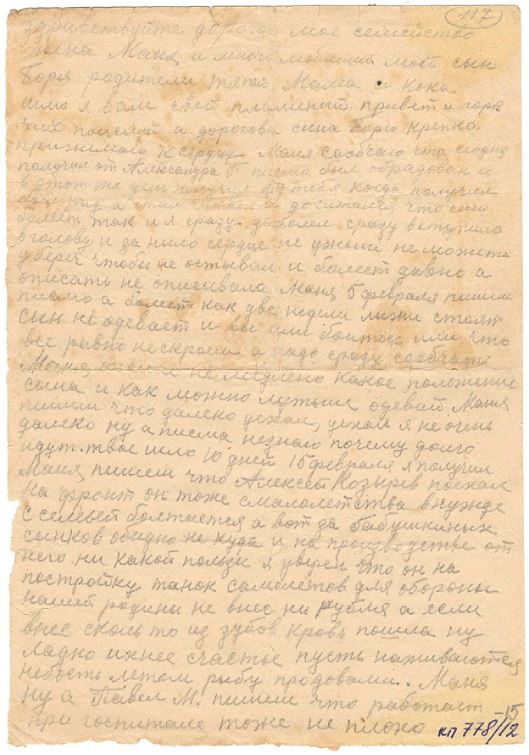 117
здравствуйте дорогое мое семейство
жена Маня и многолюбимый мой сын
Боря родители тятя мама и кока
шлю я вам свой пламений привет и горя
чий поцелуй а дорогова сына Борю крепко
прижимаю к сердцу. Маня сообчаю что сегодня
получил от Александра П письмо был обрадован и
в этот же день получил от тебя когда получил
был рад а дочитался что сын
болеет так и я сразу заболел сразу вступило
в голову и за ныло сердце не ужели не можете
уберечь чтобы не остывал и болеет давно а
описать не описивала Маня 5 февраля пишеш
письмо а болеет как две недели лыжи стоят
сын не одевает и вы или боитесь или что
все равно не скроеш а надо сразу сообчать
Маня опиши не медлено какое положение
сына и как можно лутьше одевай Маня
пишеш что далеко уехал, уехал я не очень
далеко ну а писма незнаю почему долго
идут. твое шло 10 дней 15 февраля я получил
Маня пишеш что Алексей Козырев поехал
на фронт он тоже смалалетства внужде
с семьей болтается а вот за бабушкиных
сынков обидно не куда и на производстве от
него ни какой пользы я уверен что он на
постройку танок самолетов для обороны
нашей родины не внес ни рубля а если
внес сколь то из зубов кровь пошла ну
ладно ихнее счастье пусть наживаются
небось летом рыбу продовали.. Маня
ну а Павел М. пишеш что работает
при госпитале тоже не плохо
-15
кп 778/12